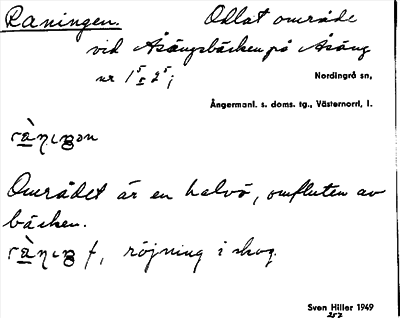 Raningen. Odlat område
vid Åsängsbäcken på Åsäng
nr 1⁵ I 2⁵;
Nordingrå sn,
Ångermanl. s. doms. tg., Västernorrl, l.
Området är en halvö, omfluten av
bäcken.
f, röjning i skog.
Sven Hiller 1949